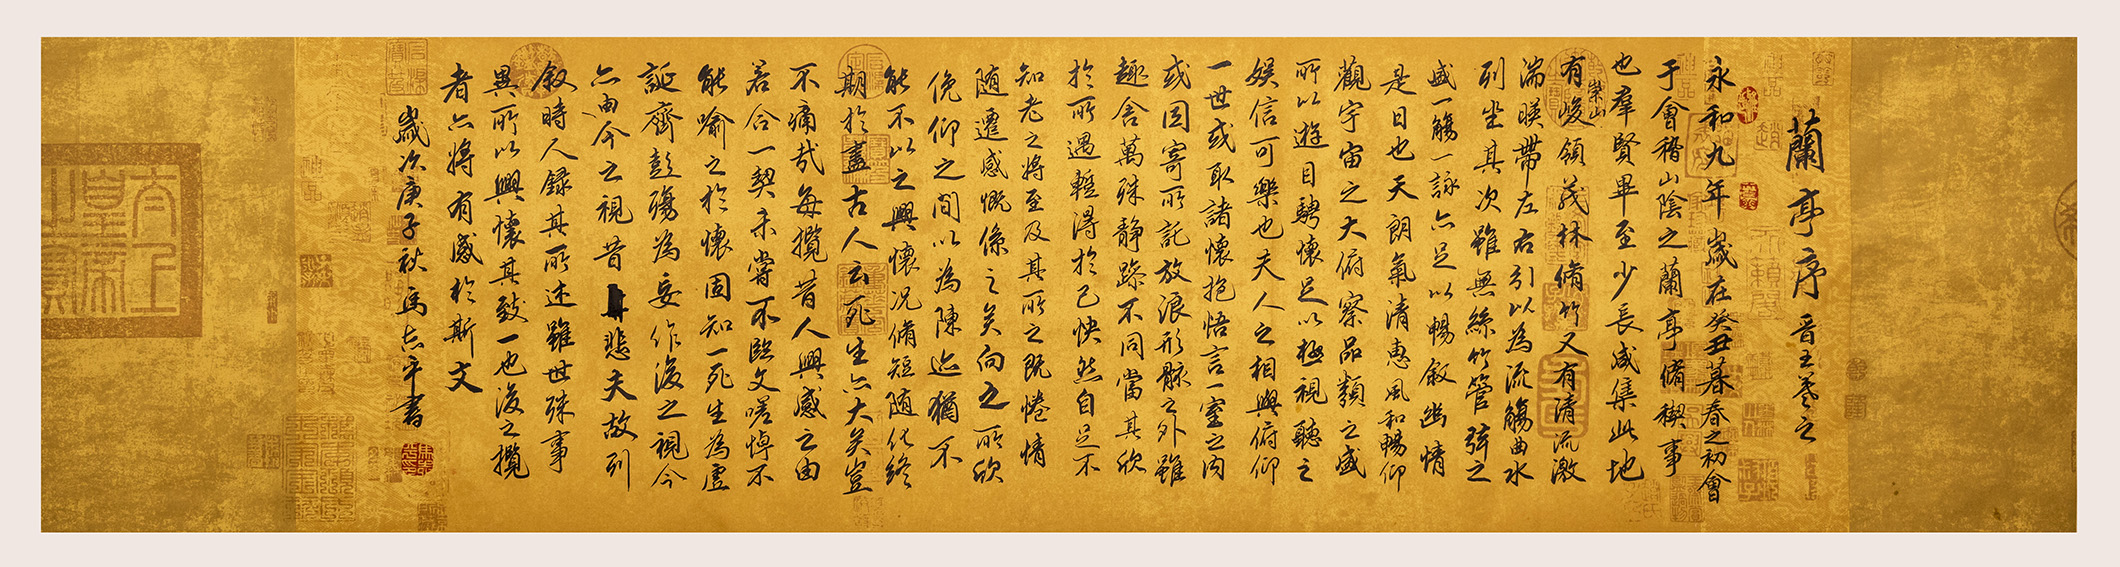 蘭亭序 晉王羲之
永和九年歲在癸丑暮春之初會
于會稽山陰之蘭亭脩稧事
也羣賢畢至少長咸集此地
有崇山峻領茂林脩竹又有清流激
湍暎帶左右引以為流觴曲水
列坐其次雖無絲竹管弦之
盛一觴一詠亦足以暢敘幽情
是日也天朗氣清惠風和暢仰
觀宇宙之大俯察品類之盛
所以遊目騁懷足以極視聽之
娛信可樂也夫人之相與俯仰
一世或取諸懷抱悟言一室之內
或因寄所託放浪形骸之外雖
趣舍萬殊靜躁不同當其欣
於所遇蹔得於己快然自足不
知老之將至及其所之既惓情
隨遷感慨係之矣向之所欣
俛仰之間以為陳迹猶不
能不以之興懷況脩短隨化終
期於盡古人云死生亦大矣豈
不痛哉每攬昔人興感之由
若合一契未嘗不臨文嗟悼不
能喻之於懷固知一死生為虛
誕齊彭殤為妄作後之視今
亦由今之視昔悲夫故列
敘時人錄其所述雖世殊事
異所以興懷其致一也後之攬
者亦將有感於斯文
歲次庚子秋馮志平書